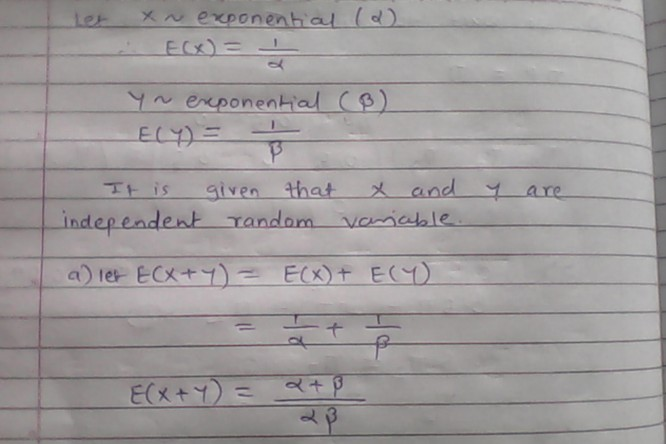 Let X ~ exponential (α)
∴ E(X) = 1/α
Y ~ exponential (β)
E(Y) = 1/β
It is given that X and Y are
independent random variable.
a) let E(X+Y) = E(X) + E(Y)
= 1/α + 1/β
E(X+Y) = α+β/αβ